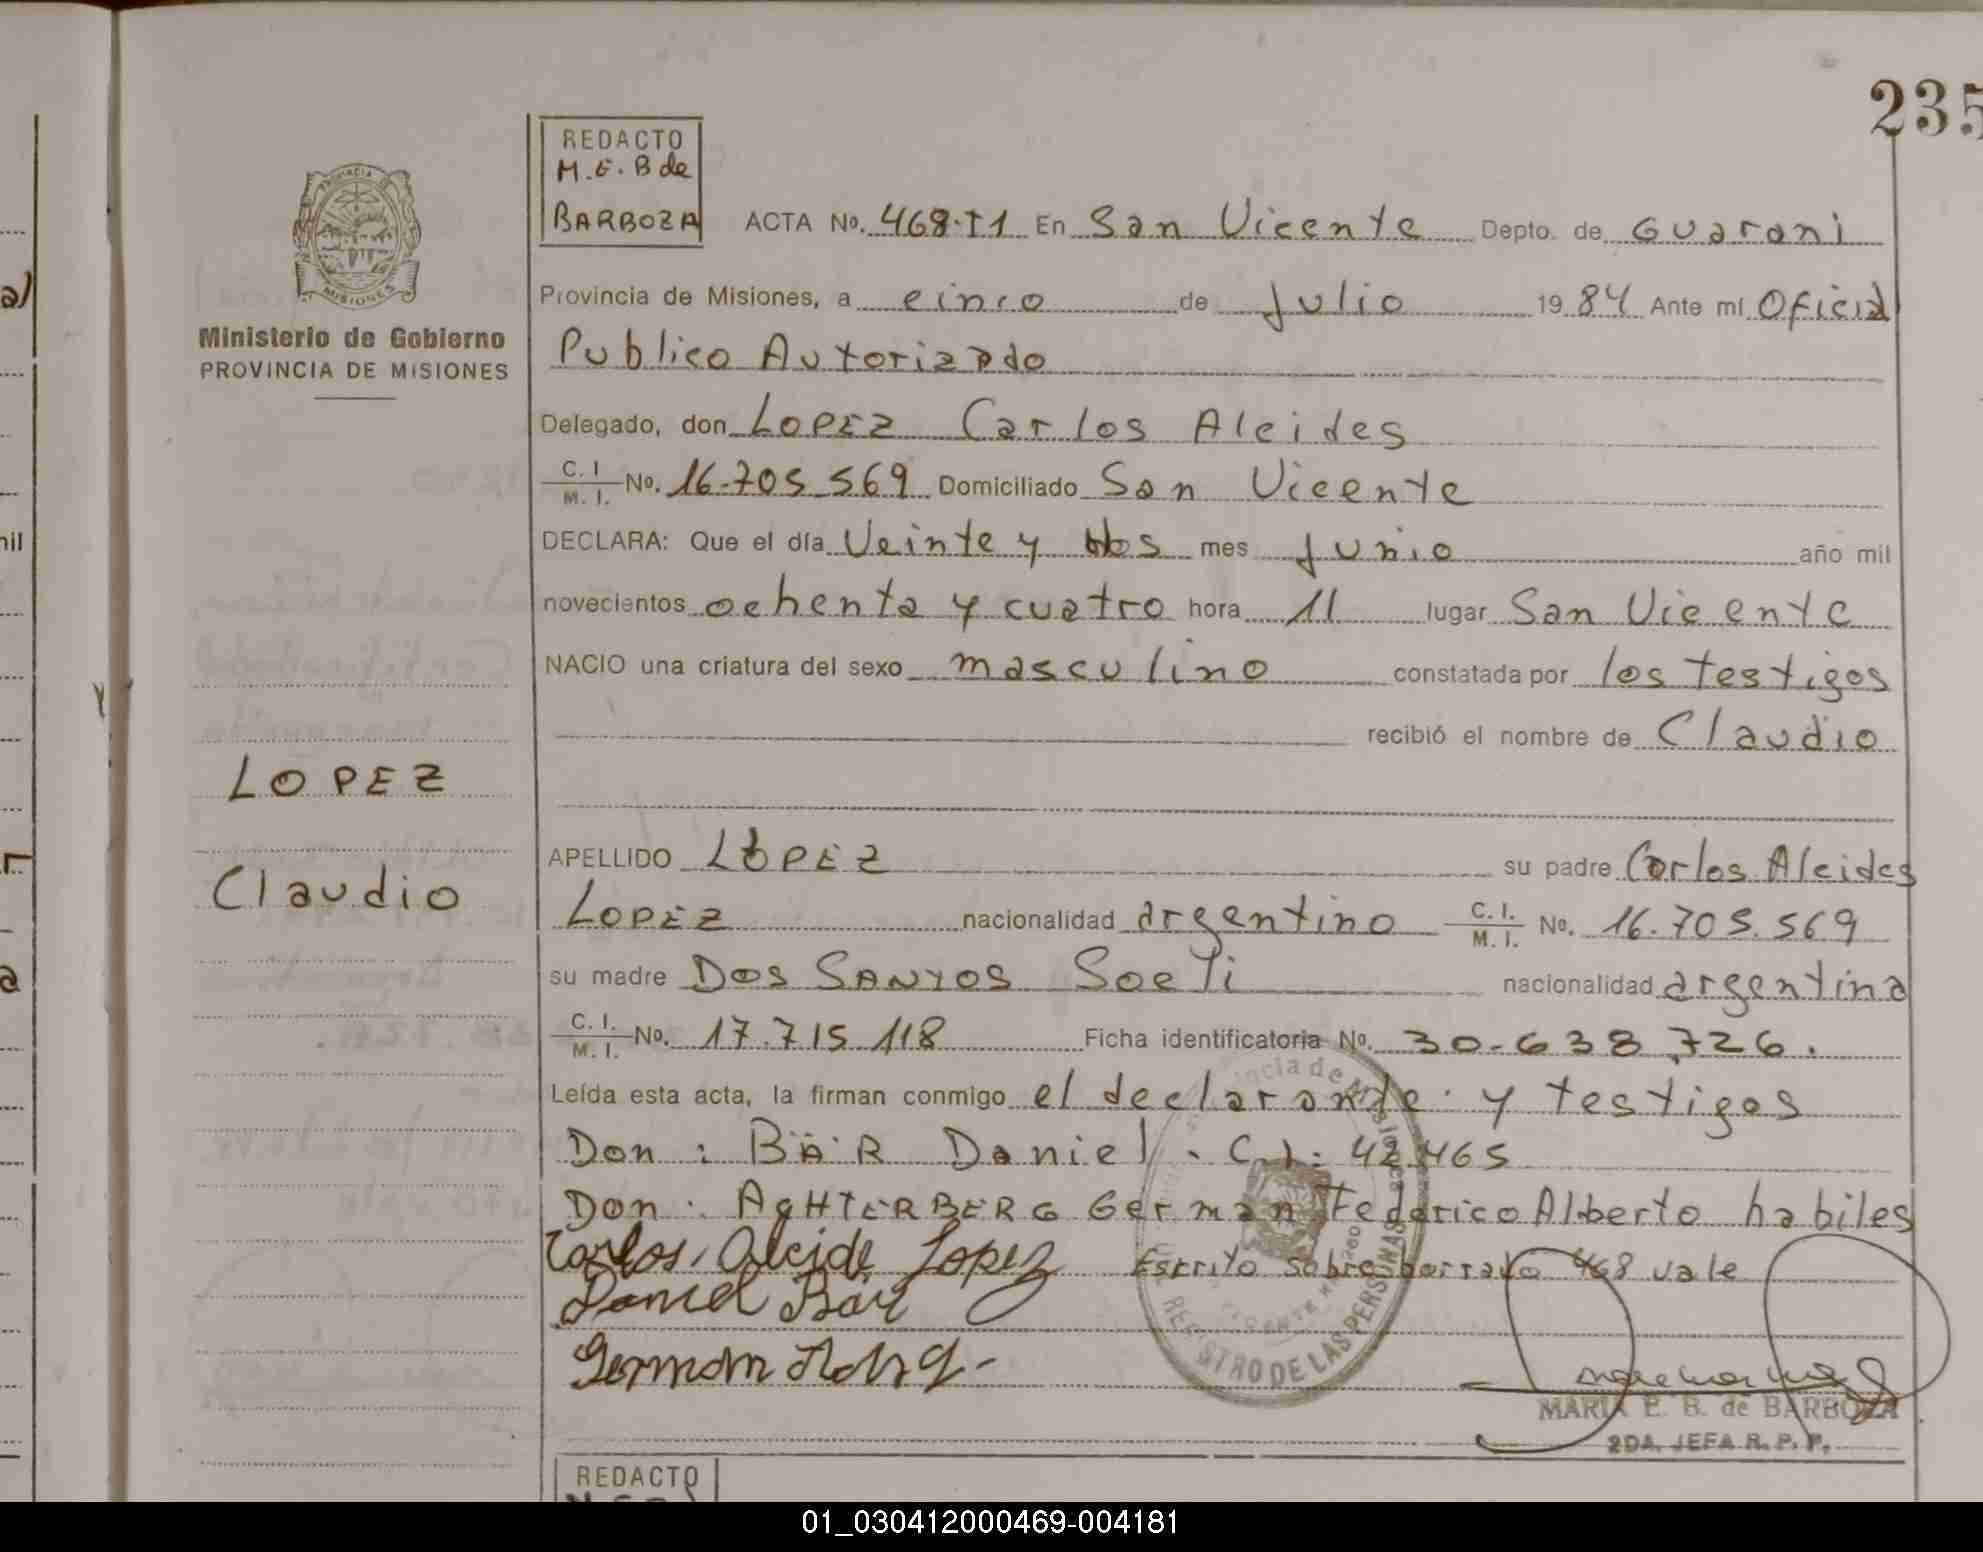 235
REDACTO
M.E.B de
BARBOZA
ACTA No. 468-T1 En San Vicente Depto. de Guarani
PROVINCIA DE
MISIONES
Ministerio de Gobierno
PROVINCIA DE MISIONES
Provincia de Misiones, a cinco de Julio 1984 Ante mí Oficial
Publico Autorizado
Delegado, don LOPEZ Carlos Alcides
C. I. / M. I. No. 16.705.569 Domiciliado San Vicente
DECLARA: Que el día Veinte y dos mes Junio año mil
novecientos ochenta y cuatro hora 11 lugar San Vicente
NACIO una criatura del sexo masculino constatada por los testigos
recibió el nombre de Claudio
LOPEZ
Claudio
APELLIDO LOPEZ su padre Carlos Alcides
LOPEZ nacionalidad argentino C. I. / M. I. No. 16.705.569
su madre DOS SANTOS Soeli nacionalidad argentina
C. I. / M. I. No. 17.715.118 Ficha identificatoria No. 30-638.726.
Leída esta acta, la firman conmigo el declarante y testigos
Don: BÄR Daniel. C.I: 42.465
Don: AGHTERBERG German Federico Alberto habiles
Carlos Alcide Lopez Escrito sobre borrado 468 vale
Daniel Bar
German
Provincia de Misiones
REGISTRO DE LAS PERSONAS
MARIA E. B. de BARBOZA
2DA. JEFA R. P. P.
REDACTO
01_030412000469-004181